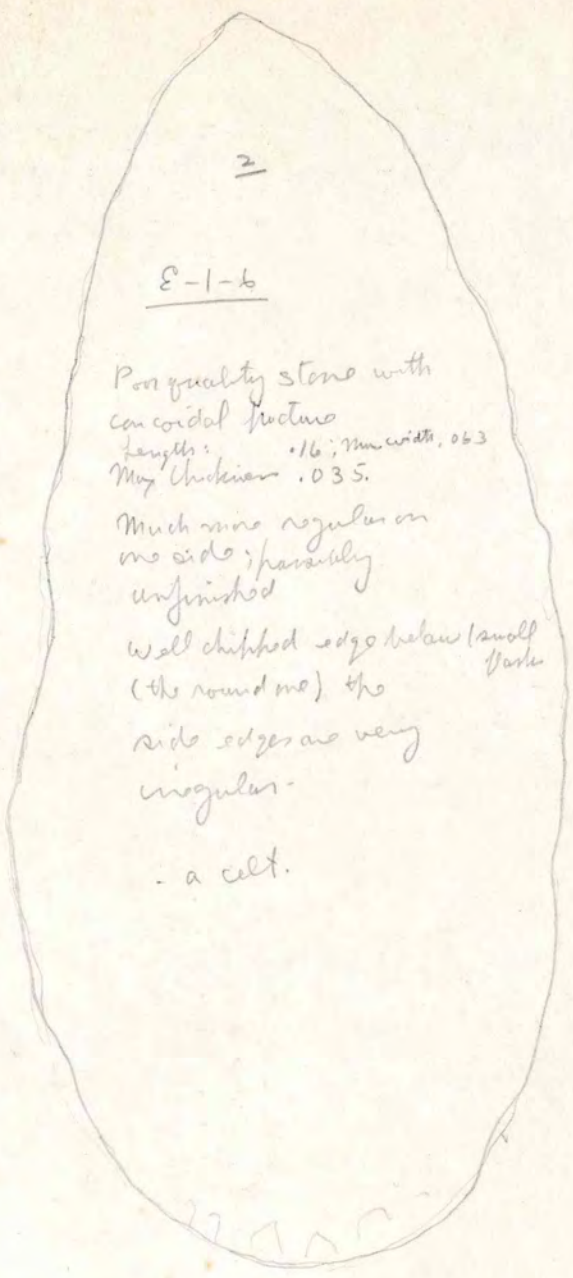 2
E-1-6
Poor quality stone with
concoidal fracture
Length: .16; Max width, .063
Max thickness .035.
Much more regular on
one side; possibly
unfinished
Well chipped edge below (small
flakes
(the round one) the
side edges are very
irregular-
- a celt.